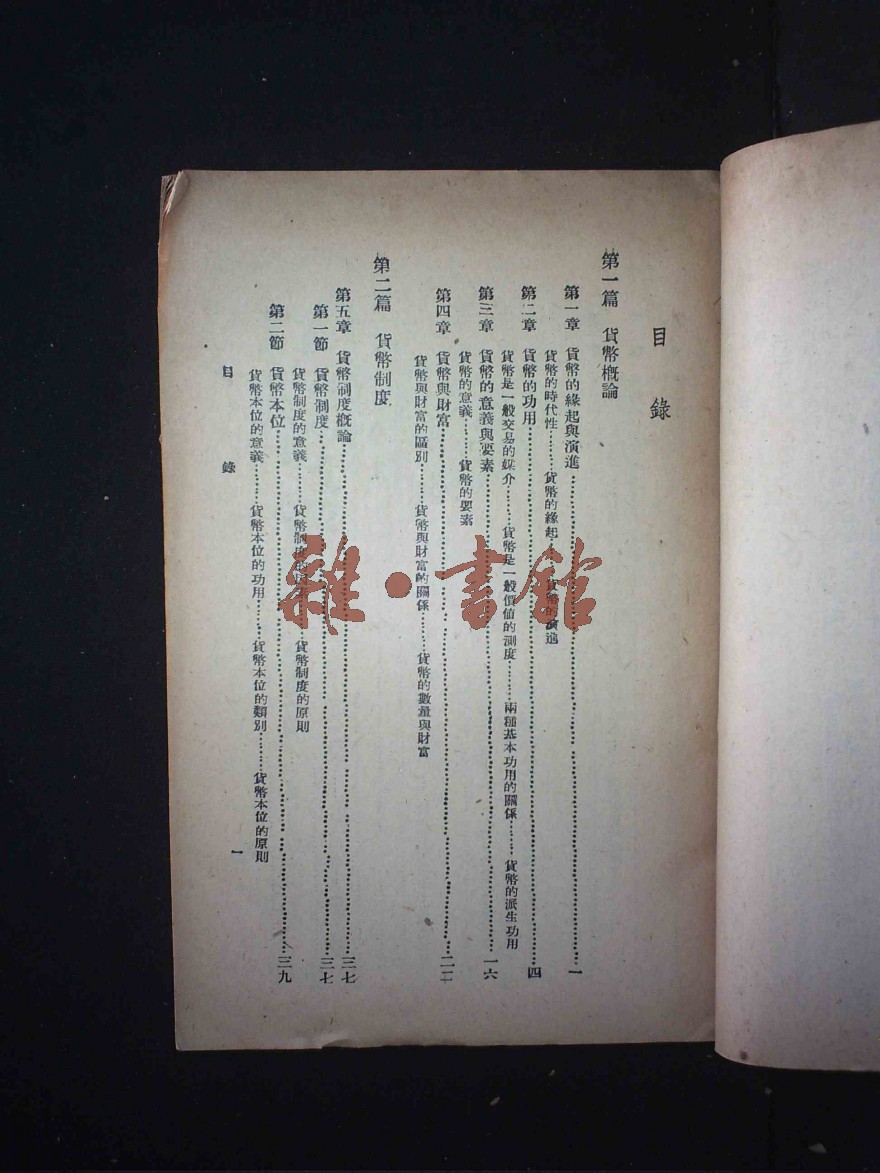 目錄
第一篇 貨幣概論
第一章 貨幣的緣起與演進……一
貨幣的時代性……貨幣的緣起……貨幣的演進
第二章 貨幣的功用……四
貨幣是一般交易的媒介……貨幣是一般價值的測度……兩種基本功用的關係……貨幣的派生功用
第三章 貨幣的意義與要素……一六
貨幣的意義……貨幣的要素
第四章 貨幣與財富……二
貨幣與財富的區別……貨幣與財富的關係……貨幣的數量與財富
第二篇 貨幣制度
第五章 貨幣制度概論……三七
第一節 貨幣制度……三七
貨幣制度的意義……貨幣制度的……貨幣制度的原則
第二節 貨幣本位……三九
貨幣本位的意義……貨幣本位的功用……貨幣本位的類別……貨幣本位的原則
目錄
一
雜·書館